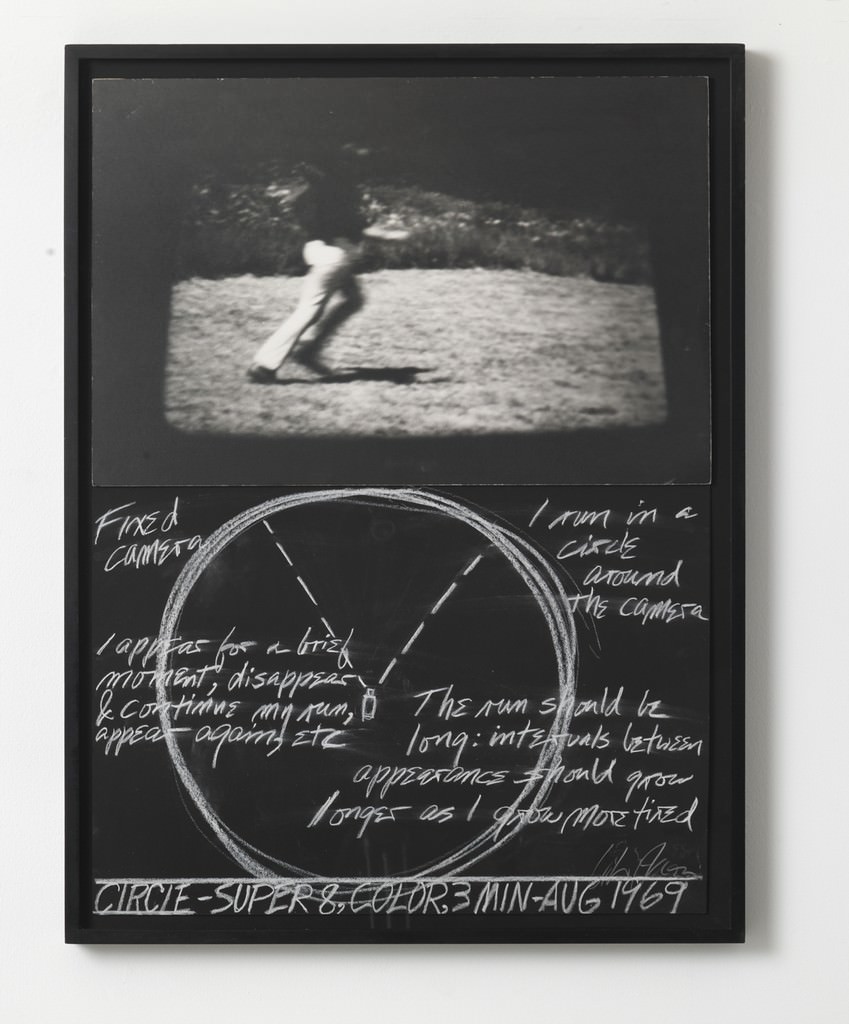 Fixed
camera
I run in a
circle
around
the camera
I appear for a brief
moment, disappear
& continue my run,
appear again, etc
The run should be
long: intervals between
appearance should grow
longer as I grow more tired
CIRCLE-SUPER 8, COLOR, 3 MIN-AUG 1969